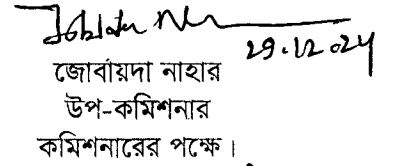 29.12.24
জোবায়দা নাহার
উপ-কমিশনার
কমিশনারের পক্ষে।